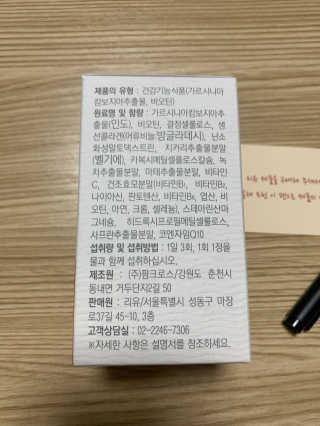 제품의 유형 : 건강기능식품(가르시니아
캄보지아추출물, 비오틴)
원료명 및 함량 : 가르시니아캄보지아추
출물(인도), 비오틴, 결정셀룰로스, 생
선콜라겐(어류비늘:방글라데시), 난소
화성말토덱스트린, 치커리추출물분말
(벨기에), 카복시메틸셀룰로스칼슘, 녹
차추출물분말, 마테추출물분말, 비타민
C, 건조효모분말(비타민B₁, 비타민B₂,
나이아신, 판토텐산, 비타민B₆, 엽산, 비
오틴, 아연, 크롬, 셀레늄), 스테아린산마
그네슘, 히드록시프로필메틸셀룰로스,
사프란추출물분말, 코엔자임Q10
섭취량 및 섭취방법 : 1일 3회, 1회 1정을
물과 함께 섭취하십시오.
제조원 : (주)팜크로스/강원도 춘천시
동내면 거두단지2길 50
판매원 : 리유/서울특별시 성동구 마장
로37길 45-10, 3층
고객상담실 : 02-2246-7306
※자세한 사항은 설명서를 참조하세요.